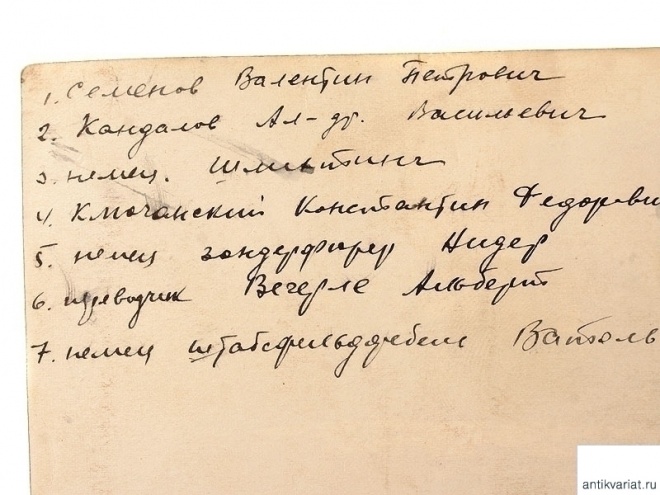 1. Семенов Валентин Петрович
2. Кандалов Ал-др. Васильевич
3. немец.
4. Константин Федорови
5. немец зондерфюрер Нидер
6. переводчик Вечерле Альберт
7. немец штабсфельдфебель
antikvariat.ru